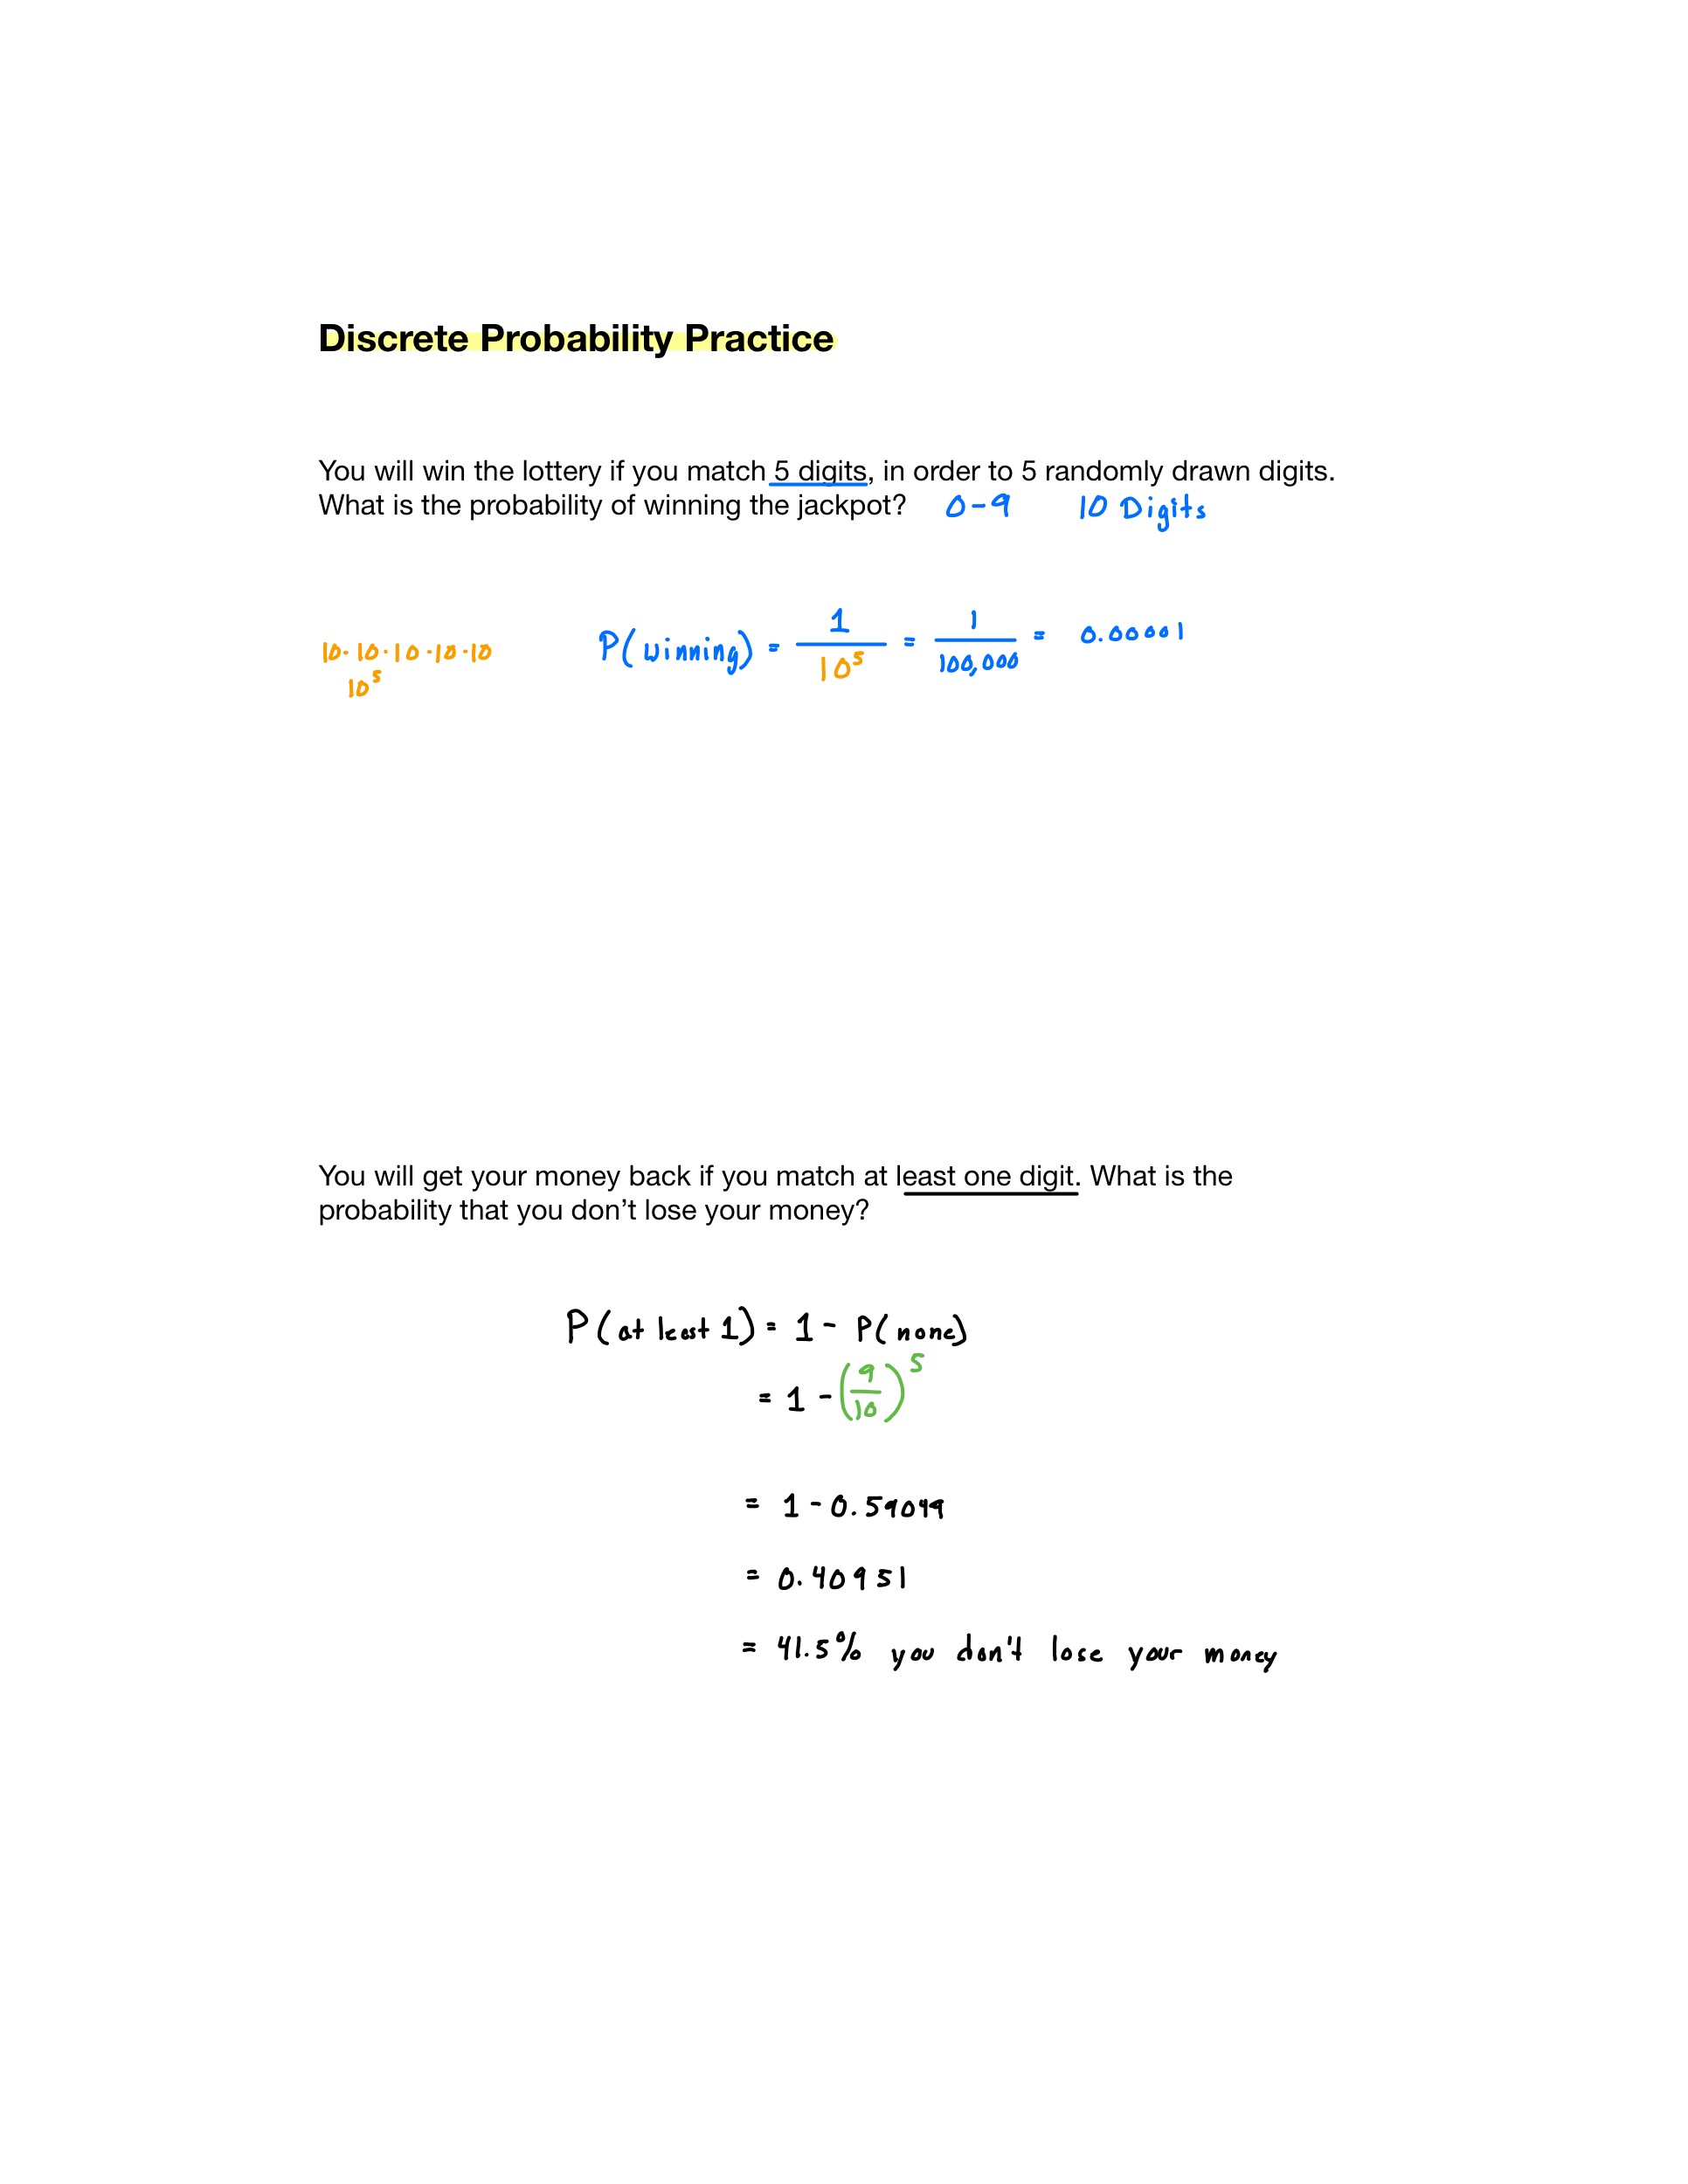 Discrete Probability Practice
You will win the lottery if you match 5 digits, in order to 5 randomly drawn digits.
What is the probability of winning the jackpot? 0-9 10 Digits
10·10·10·10·10
10⁵
P(winning) = 1/10⁵ = 1/100,000 = 0.00001
You will get your money back if you match at least one digit. What is the
probability that you don’t lose your money?
P(at least 1) = 1 - P(none)
= 1 - (9/10)⁵
= 1 - 0.59049
= 0.40951
= 41.5% you don't lose your money